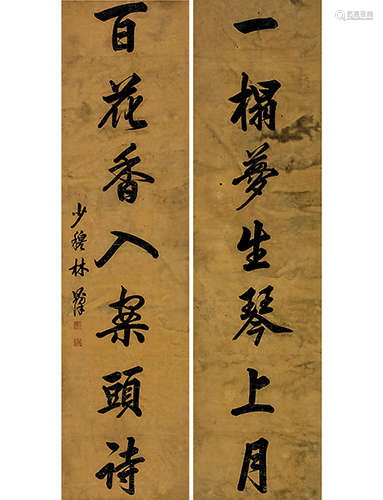 一榻夢生琴上月
百花香入案頭詩
少穆林則徐